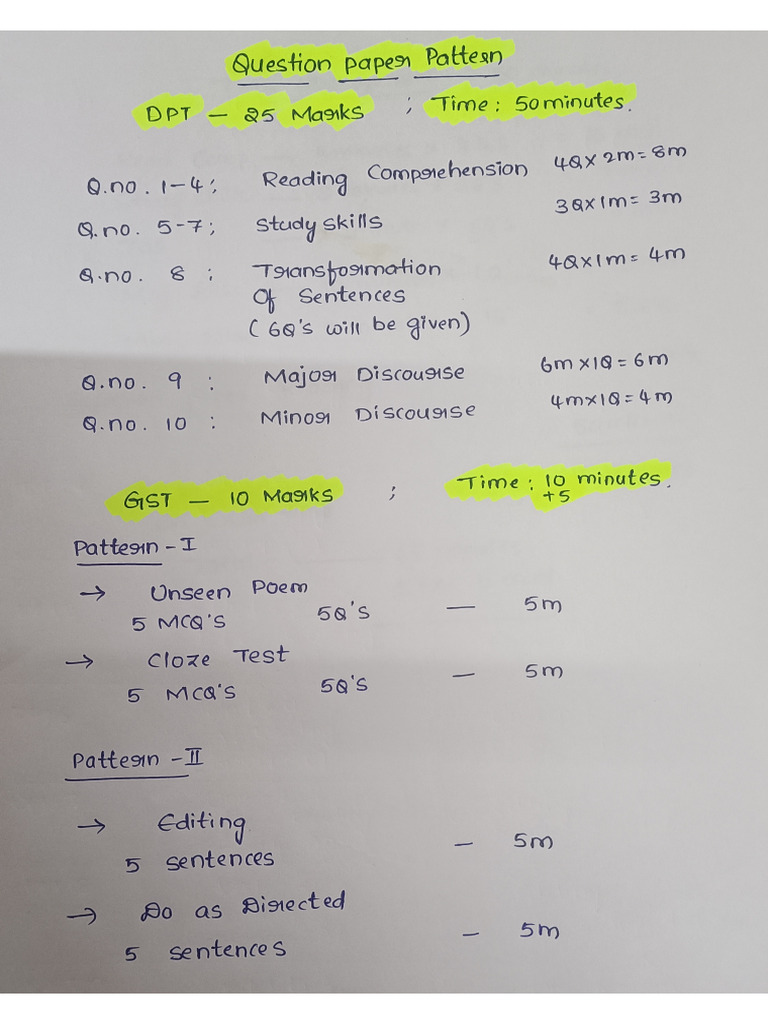 Question Paper Pattern
DPT — 25 Marks ; Time: 50 minutes.
Q.no. 1-4; Reading Comprehension 4Q x 2m = 8m
Q.no. 5-7; Study Skills 3Q x 1m = 3m
Q.no. 8 : Transformation 4Q x 1m = 4m
Of Sentences
(6Q's will be given)
Q.no. 9 : Major Discourse 6m x 1Q = 6m
Q.no. 10 : Minor Discourse 4m x 1Q = 4m
GST — 10 Marks ; Time: 10 minutes.
+5
Pattern - I
→ Unseen Poem
5 MCQ'S 5Q's — 5m
→ Cloze Test
5 MCQ's 5Q's — 5m
Pattern - II
→ Editing
5 sentences — 5m
→ Do as Directed
5 sentences — 5m